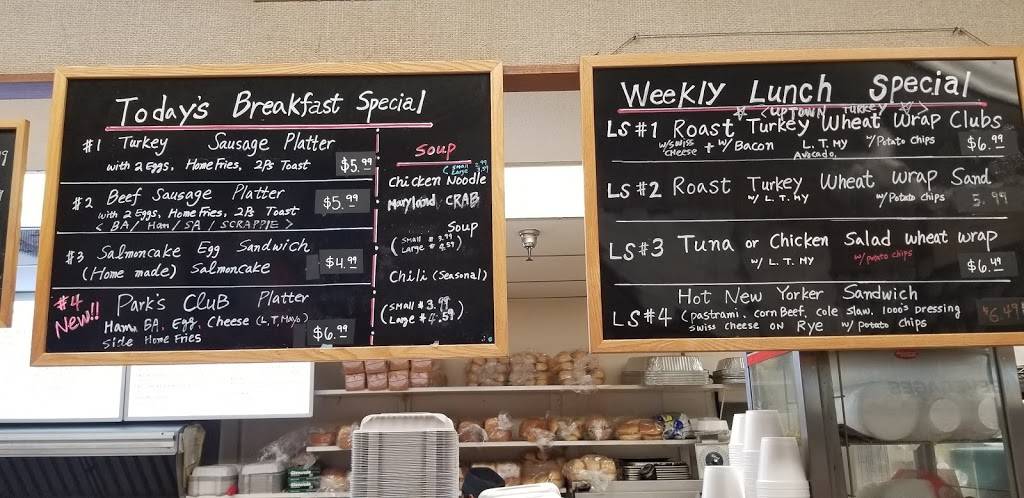 Today's Breakfast Special
#1 Turkey Sausage Platter
with 2 Eggs, Home Fries, 2Ps Toast
$5.99
#2 Beef Sausage Platter
with 2 Eggs, Home Fries, 2Ps Toast
< BA / Ham / SA / SCRAPPLE >
$5.99
#3 Salmoncake Egg Sandwich
(Home made) Salmoncake
$4.99
#4 New!!
Park's Club Platter
Ham, BA, Egg, Cheese (L,T,Mayo)
Side Home Fries
$6.99
Soup
Small
Large
Chicken Noodle
Maryland CRAB
Soup
(Small $3.99
Large $4.59)
Chili (Seasonal)
(Small $3.99
Large $4.59)
Weekly Lunch Special
☆ <UPTOWN TURKEY ☆>
LS#1 Roast Turkey Wheat Wrap Clubs
w/Swiss Cheese + w/ Bacon L.T. MY w/Potato chips
Avocado,
$6.99
LS#2 Roast Turkey Wheat Wrap Sand
w/ L.T. MY w/Potato chips 5.99
LS#3 Tuna or Chicken Salad wheat wrap
w/ L.T. MY w/potato chips
$6.49
Hot New Yorker Sandwich
LS#4 (pastrami. Corn Beef, cole slaw, 1000's pressing
Swiss cheese on Rye w/ potato chips
$6.49